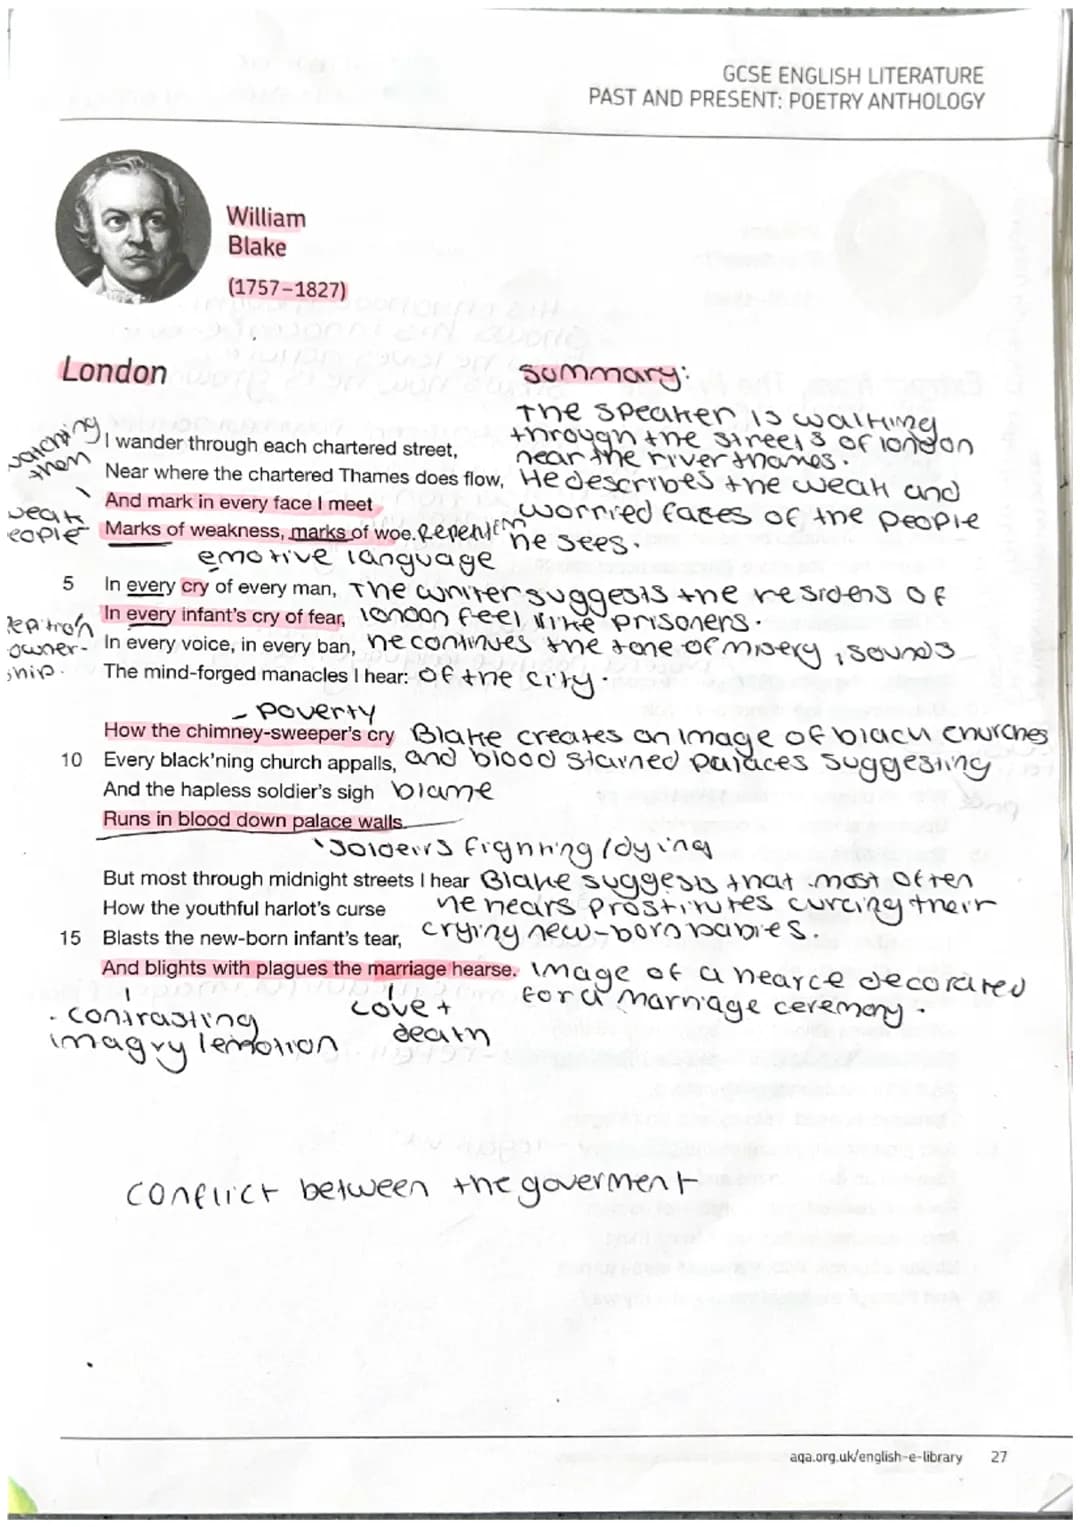 GCSE ENGLISH LITERATURE
PAST AND PRESENT: POETRY ANTHOLOGY
William
Blake
(1757–1827)
London
summary:
The speaker is walking
through the streets of london
near the river thames.
watching
them
I wander through each chartered street,
Near where the chartered Thames does flow, He describes the weak and
And mark in every face I meet worried faces of the people
weak
people
Marks of weakness, marks of woe. Repetition he sees.
emotive language
5 In every cry of every man, The writer suggests the residens of
In every infant's cry of fear, london feel like prisoners.
In every voice, in every ban, he continues the tone of misery, sounds
owner-
ship.
The mind-forged manacles I hear: of the city.
- poverty
How the chimney-sweeper's cry Blake creates an image of black churches
10 Every black'ning church appalls, and blood stained palaces suggesting
And the hapless soldier's sigh blame
Runs in blood down palace walls.
soldeirs fighting / dying
But most through midnight streets I hear Blake suggests that most often
How the youthful harlot's curse he hears prostitutes curcing their
15 Blasts the new-born infant's tear, crying new-born babies.
And blights with plagues the marriage hearse. Image of a hearce decorated
for a marriage ceremony.
- contrasting
imagry / emotion
Love +
death
conflict between the goverment
aqa.org.uk/english-e-library 27